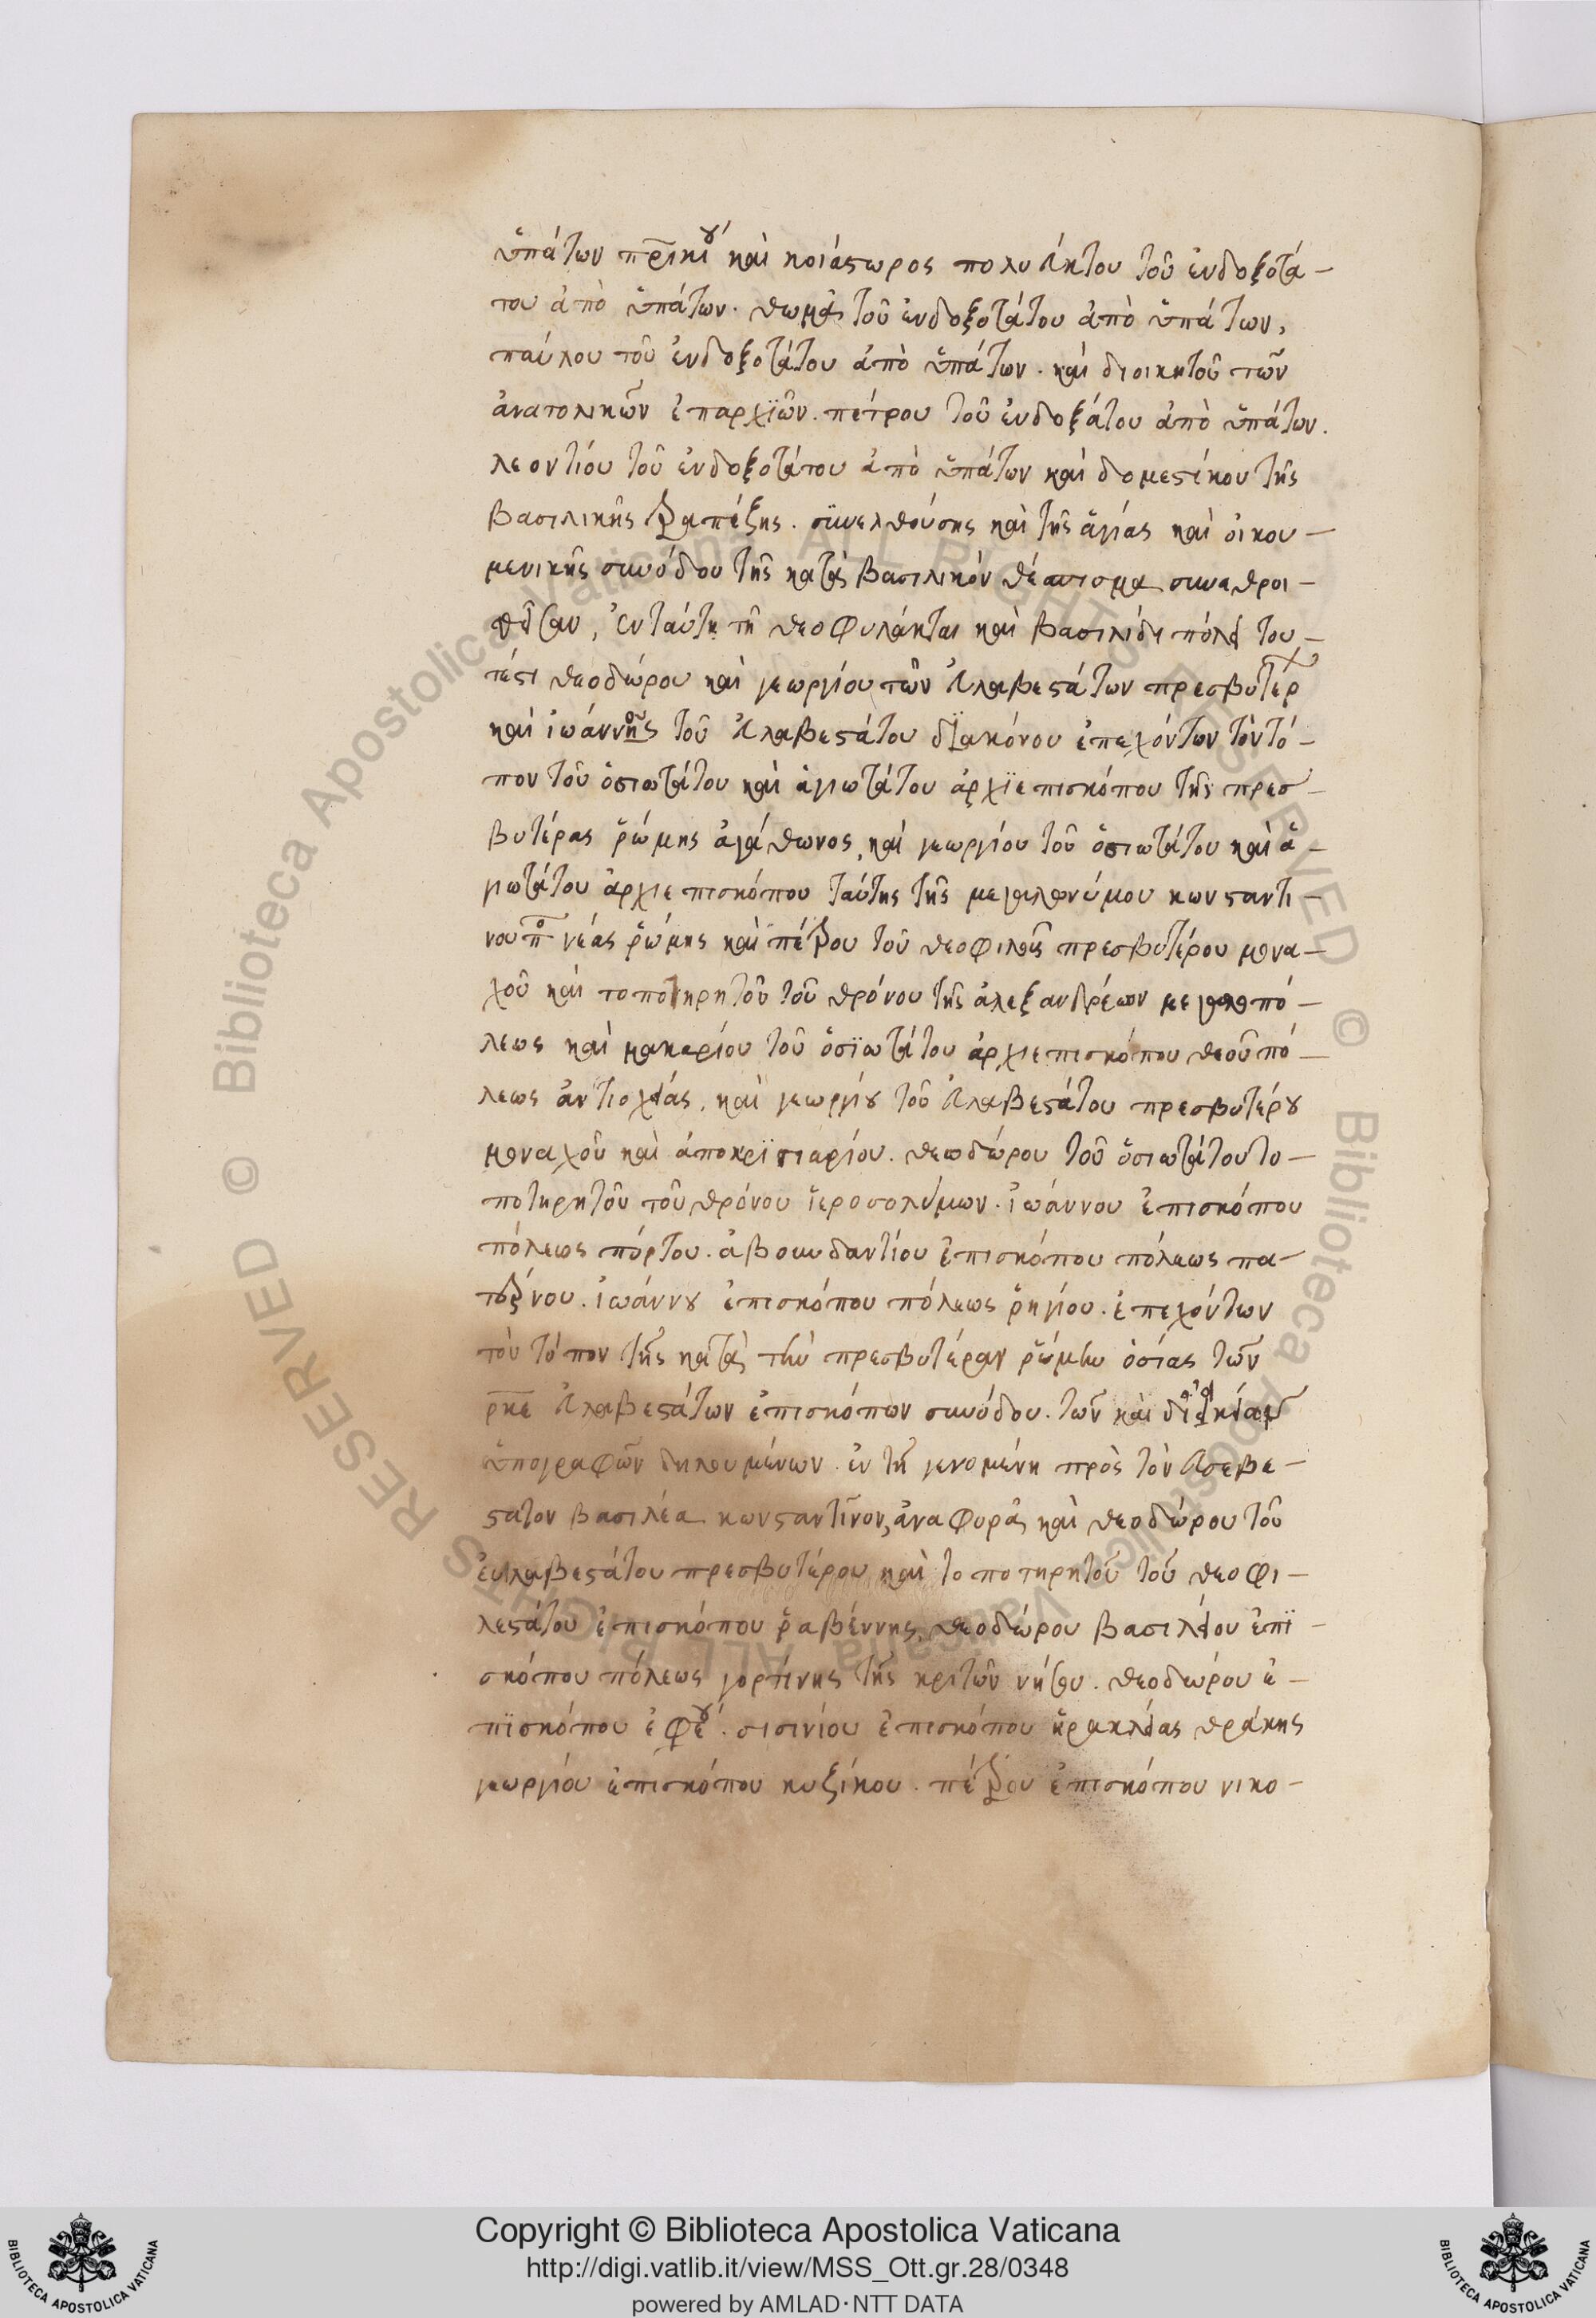 ὑπάτων πρικίου καὶ κοιάστωρος πολυεύκτου τοῦ ἐνδοξοτά-
του ἀπὸ ὑπάτων. θωμᾶ τοῦ ἐνδοξοτάτου ἀπὸ ὑπάτων,
παύλου τοῦ ἐνδοξοτάτου ἀπὸ ὑπάτων. καὶ διοικητοῦ τῶν
ἀνατολικῶν ἐπαρχϊῶν. πέτρου τοῦ ἐνδοξάτου ἀπὸ ὑπάτων.
λεοντίου τοῦ ἐνδοξοτάτου ἀπὸ ὑπάτων καὶ δομεστίκου τῆς
βασιλικῆς τραπέζης. συνελθούσης καὶ τῆς ἁγίας καὶ οἰκου-
μενικῆς συνόδου τῆς κατὰ βασιλικὸν θέσπισμα συναθροι-
σθεῖσαν, ἐν ταύτῃ τῇ θεοφυλάκτωι καὶ βασιλίδι πόλει του-
τέστι θεοδώρου καὶ γεωργίου τῶν εὐλαβεστάτων πρεσβυτέρων
καὶ ἰωάννου τοῦ εὐλαβεστάτου διακόνου ἐπεχόντων τὸν τό-
πον τοῦ ὁσιωτάτου καὶ ἁγιωτάτου ἀρχϊεπισκόπου τῆς πρεσ-
βυτέρας ῥώμης ἀγάθωνος, καὶ γεωργίου τοῦ ὁσιωτάτου καὶ ἁ-
γιωτάτου ἀρχιεπισκόπου ταύτης τῆς μεγαλωνύμου κωνσταντι-
νουπο νέας ῥώμης καὶ πέτρου τοῦ θεοφιλοῦς πρεσβυτέρου μονα-
χοῦ καὶ τοποτηρητοῦ τοῦ θρόνου τῆς ἀλεξανδρέων μεγαλοπό-
λεως καὶ μακαρίου τοῦ ὁσϊωτάτου ἀρχιεπισκόπου θεοῦπό-
λεως ἀντιοχείας, καὶ γεωργίου τοῦ εὐλαβεστάτου πρεσβυτέρου
μοναχοῦ καὶ ἀποκρϊσιαρίου. θεωδώρου τοῦ ὁσιωτάτου το-
ποτηρητοῦ τοῦ θρόνου ἱεροσολύμων. ἰωάννου ἐπισκόπου
πόλεως πόρτου. ἀβουνδαντίου ἐπισκόπου πόλεως πα-
τέρνου. ἰωάννου ἐπισκόπου πόλεως ῥηγίου. ἐπεχόντων
τὸν τόπον τῆς κατὰ τὴν πρεσβυτέραν ῥώμην ὁσίας τῶν
ρκε εὐλαβεστάτων ἐπισκόπων συνόδου. τῶν καὶ δι οἰκείων
ὑπογραφῶν δηλουμένων. ἐν τῇ γενομένῃ πρὸς τὸν εὐσεβε-
στατον βασιλέα κωνσταντῖνον, ἀναφορᾷ καὶ θεοδώρου τοῦ
εὐλαβεστάτου πρεσβυτέρου καὶ τοποτηρητοῦ τοῦ θεοφι-
λεστάτου ἐπισκόπου ῥαβέννης, θεοδώρου βασιλείου ἐπϊ-
σκόπου πόλεως γορτίνης τῆς κριτῶν νήσου. θεοδώρου ἐ-
πϊσκόπου ἐφέσου. σισινίου ἐπισκόπου ἡρακλείας θράκης
γεωργίου ἐπισκόπου κυζίκου. πέτρου ἐπισκόπου νικο-
Copyright © Biblioteca Apostolica Vaticana
http://digi.vatlib.it/view/MSS_Ott.gr.28/0348
powered by AMLAD·NTT DATA